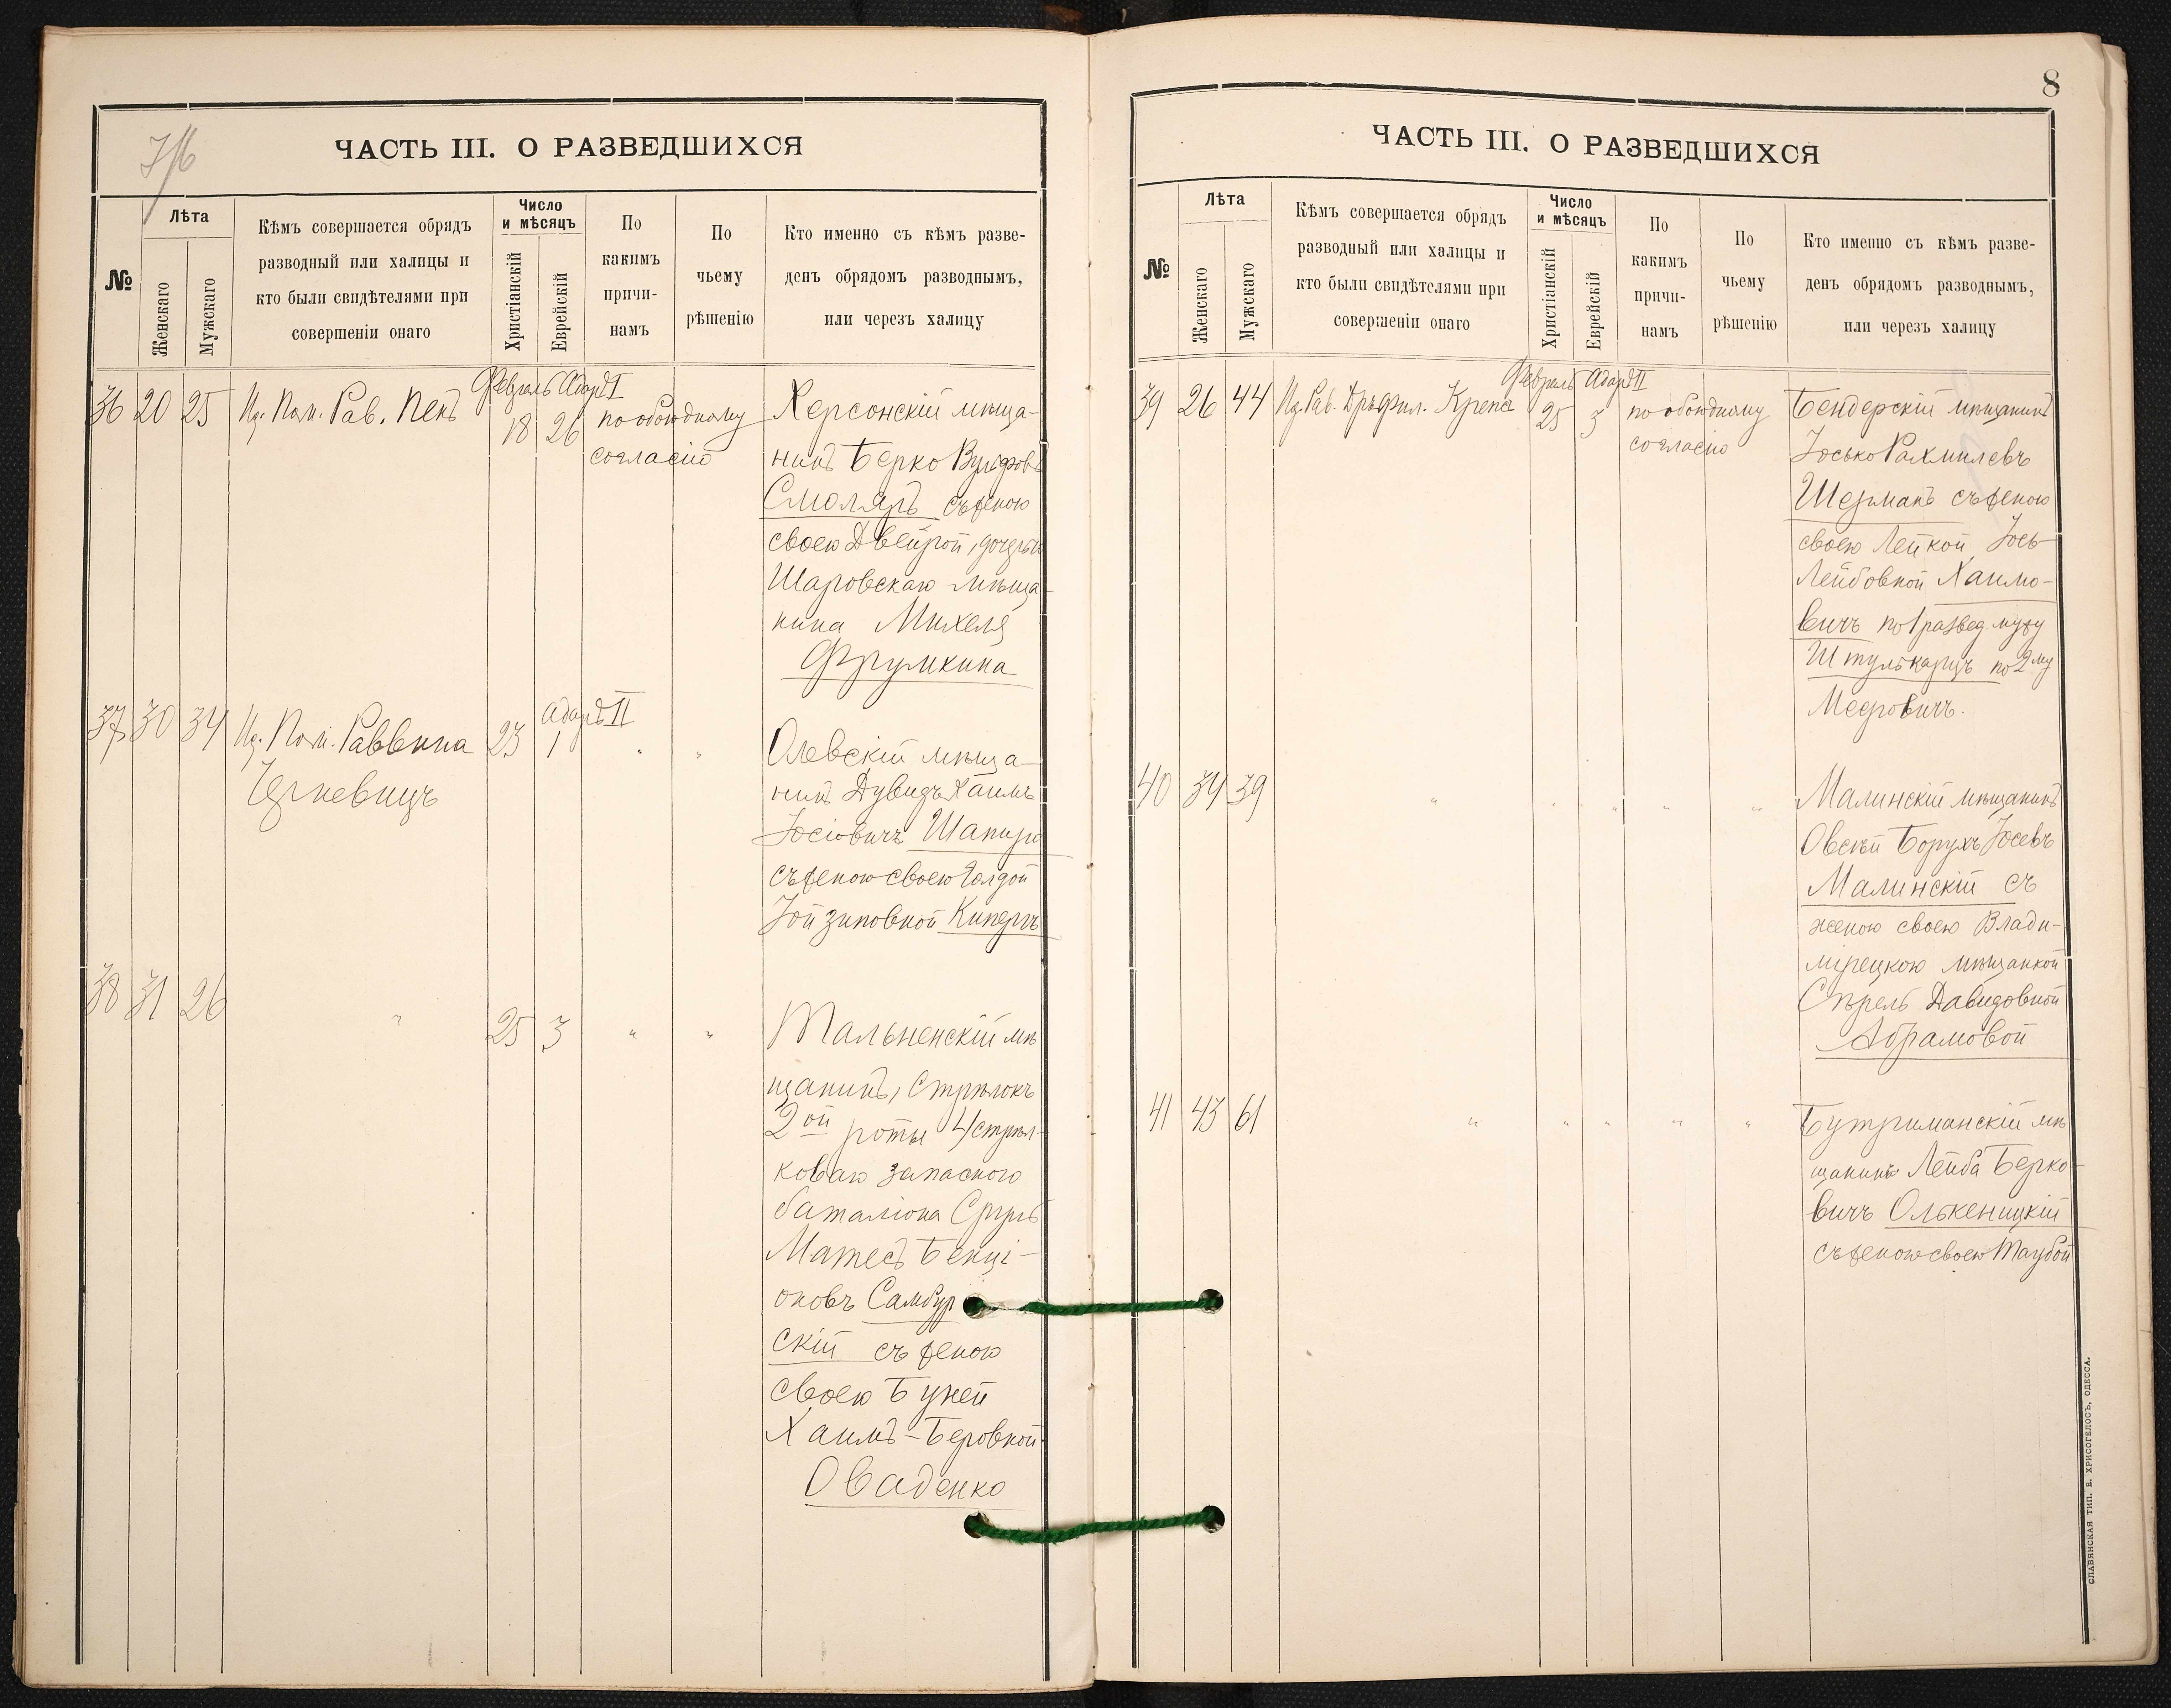 7/6
ЧАСТЬ III. О РАЗВЕДШИХСЯ
№
Лѣта
Женскаго
Мужскаго
Кѣмъ совершается обрядъ
разводный или халицы и
кто были свидѣтелями при
совершеніи онаго
Число
и мѣсяцъ
Христіанскій
Еврейскій
По
какимъ
причи-
намъ
По
чьему
рѣшенію
Кто именно съ кѣмъ разве-
денъ обрядомъ разводнымъ,
или черезъ халицу
Февраль Адаръ I
36 20 25 Пом. Рав. Пенъ 18 26 по обоюдному
согласію
Херсонскій мѣща-
нинъ Берко Вульфовъ
Смоляръ съ женою
своею Двейрой, дочерью
Шаровскаго мѣща-
нина Михеля
Фрумкина
Адаръ II
37 30 34 Пом. Раввина 23 1 " "
Черкевицъ
Олевскій мѣща-
нинъ Дувидъ Хаимъ
Іосіовичъ Шапиро
съ женою своею Голдой
Зойзиковной Киперъ
38 31 26 " 25 3 " "
Тальненскій мѣ
щанинъ, Стрѣлокъ
2ой роты 4 стрѣл-
коваго запаснаго
баталіона Сруль
Матесъ Бенці-
оновъ Самбур
скій съ женою
своею Буней
Хаимъ-Беровной
Оваденко
8
ЧАСТЬ III. О РАЗВЕДШИХСЯ
№
Лѣта
Женскаго
Мужскаго
Кѣмъ совершается обрядъ
разводный или халицы и
кто были свидѣтелями при
совершеніи онаго
Число
и мѣсяцъ
Христіанскій
Еврейскій
По
какимъ
причи-
намъ
По
чьему
рѣшенію
Кто именно съ кѣмъ разве-
денъ обрядомъ разводнымъ,
или черезъ халицу
Февраль Адаръ II
39 26 44 Рав. Крепс 25 3 по обоюдному
согласію
Бендерскій мѣщанинъ
Іосько Рахмилевъ
Шерманъ съ женою
своею Лейкой Іось-
Лейбовной Хаимо-
вичъ по 1 развед мужу
Штулькерцъ по 2му
Мееровичъ.
40 34 39 " " " " "
Малинскій мѣщанинъ
Овсѣй Борухъ Іосевъ
Малинскій съ
женою своею Влади-
мірецкою мѣщанкой
Стрель Давидовной
Абрамовой
41 43 61 " " " " "
Бутриманскій мѣ
щанинъ Лейба Берко-
вичъ Олькеницкій
съ женою своею Таубой
СЛАВЯНСКАЯ ТИП. Е. ХРИСОГЕЛОСЪ, ОДЕССА.